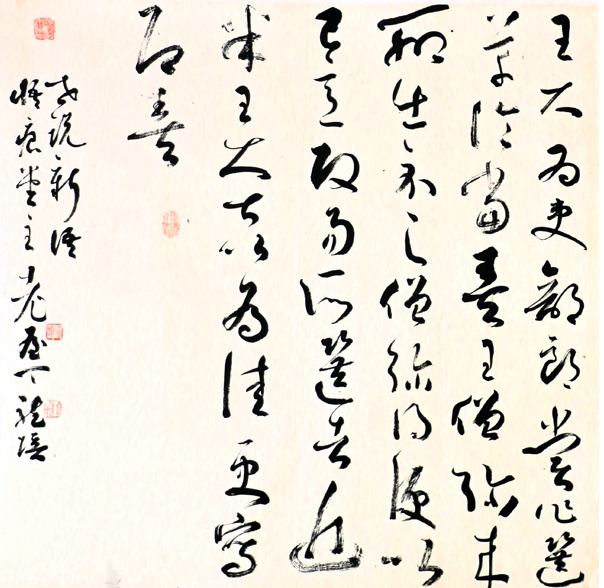 王大為吏部郎嘗作選
草臨當奏王僧彌來
聊出示之僧彌得便以
己意改易所選者近
半王大甚以為佳更寫
即奏
世說新語
悟痕堂主老